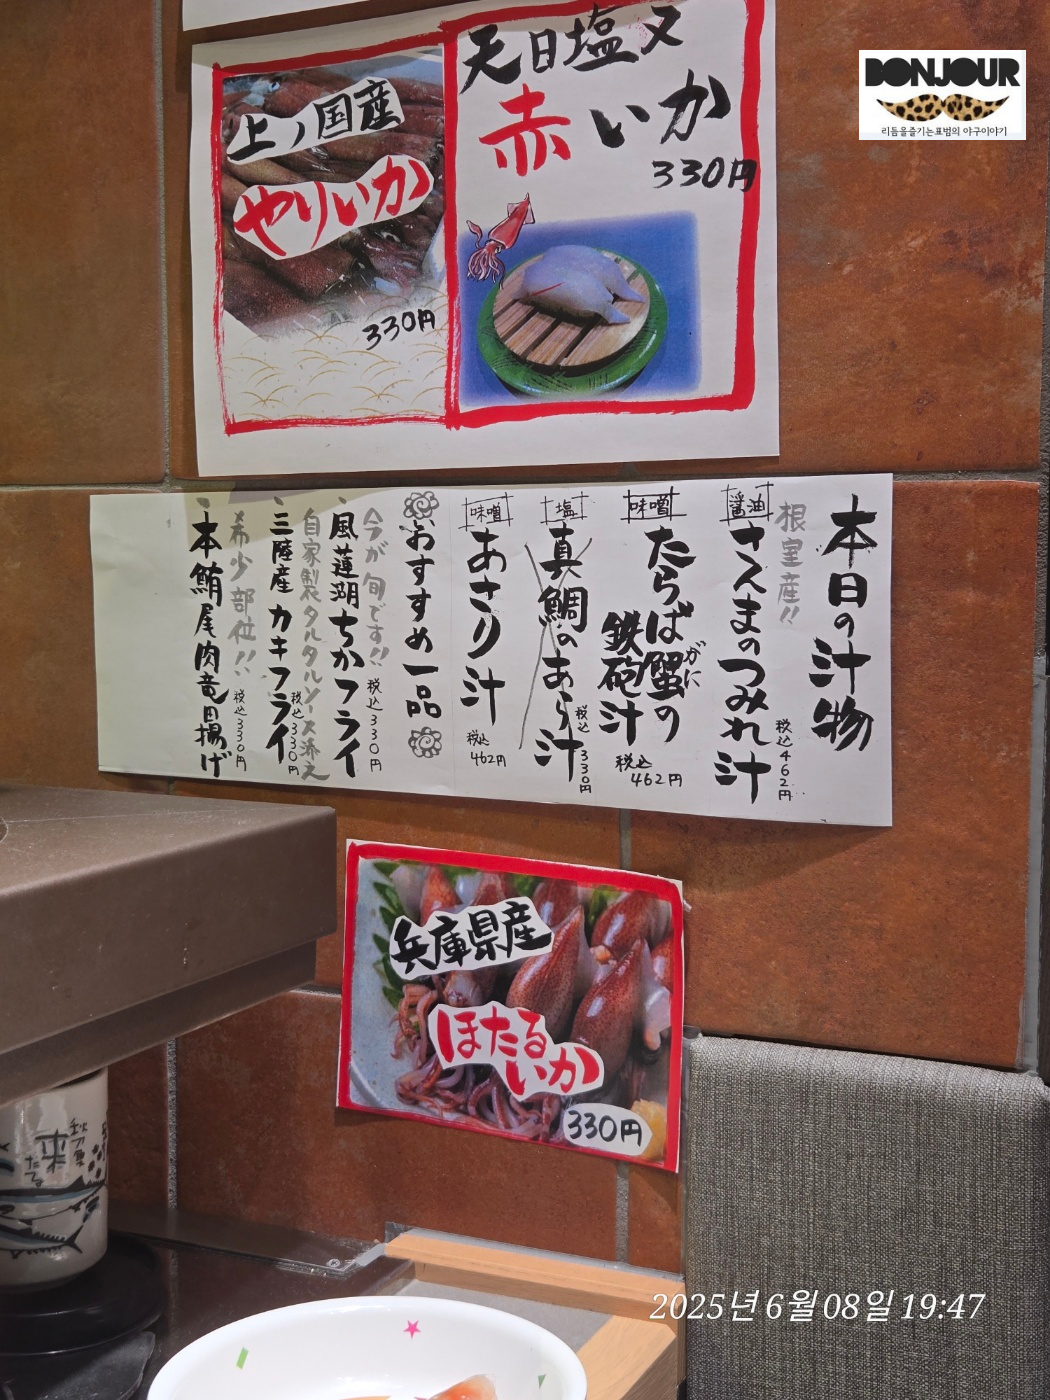 BONJOUR
리듬을즐기는표범의 야구이야기
天日塩又
赤いか
330円
上ノ国産
やりいか
330円
本日の汁物
根室産!!
醤油
さんまのつみれ汁
税込462円
味噌
たらば蟹の
がに
鉄砲汁
税込
462円
塩
真鯛のあら汁
税込330円
味噌
あさり汁
税込
462円
おすすめ一品
今が旬です!!
税込330円
・風蓮湖ちかフライ
自家製タルタルソース添え
・三陸産カキフライ
税込330円
希少部位!!
税込330円
・本鮪尾肉竜田揚げ
兵庫県産
ほたる
いか
330円
秋刀魚
来
たる
2025년 6월 08일 19:47